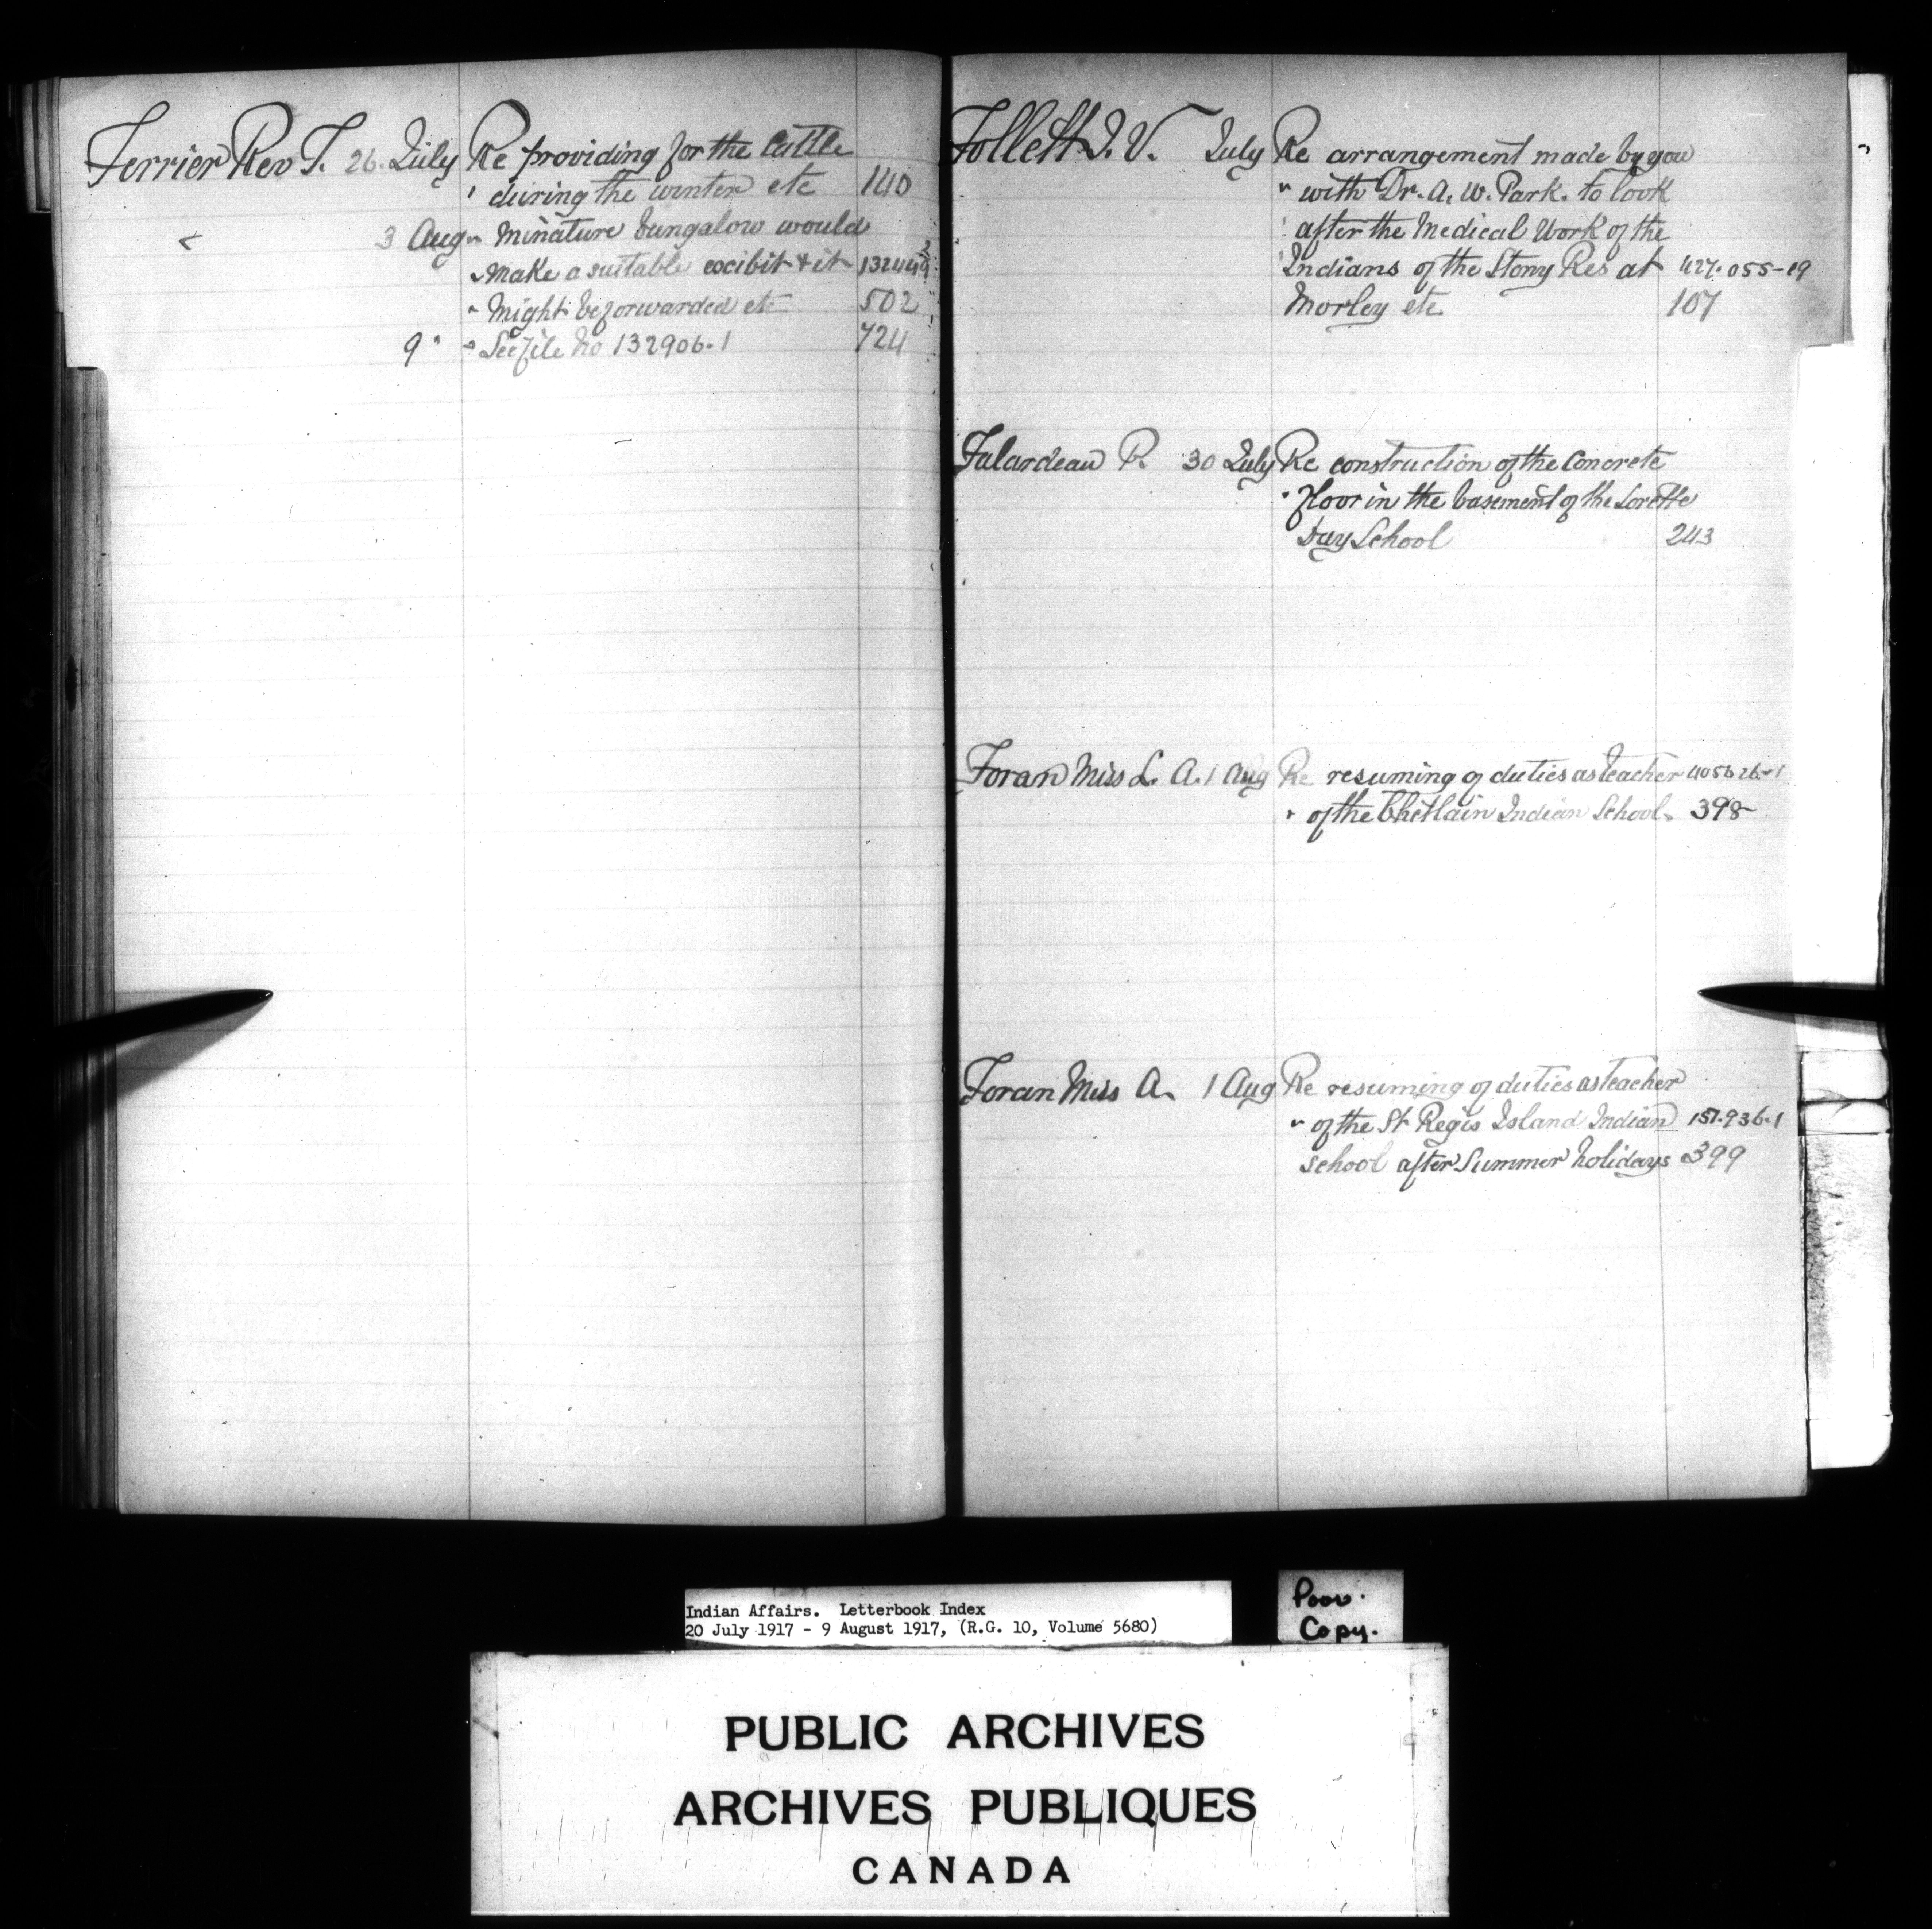 Ferrier Rev T. 26. July Re providing for the Cattle
" during the winter etc 140
3 Aug " Minature bungalow would
" Make a suitable excibit & it 132449
" Might be forwarded etc 502
9 " " See file No 132906-1 724
Follett J. V. July Re arrangement made by you
" with Dr. A. W. Park. to look
after the Medical Work of the
Indians of the Stony Res at 427.055-19
Morley etc 107
Falardeau P. 30 July Re construction of the Concrete
" floor in the basement of the Lorette
Day School 243
Foran Miss L. A. 1 Aug Re resuming of duties as teacher
" of the Indian School. 398
Foran Miss A. 1 Aug Re resuming of duties as teacher
" of the St Regis Island Indian 151.936-1
school after Summer holidays 399
Indian Affairs. Letterbook Index
20 July 1917 - 9 August 1917, (R.G. 10, Volume 5680)
Poor.
Copy.
PUBLIC ARCHIVES
ARCHIVES PUBLIQUES
CANADA